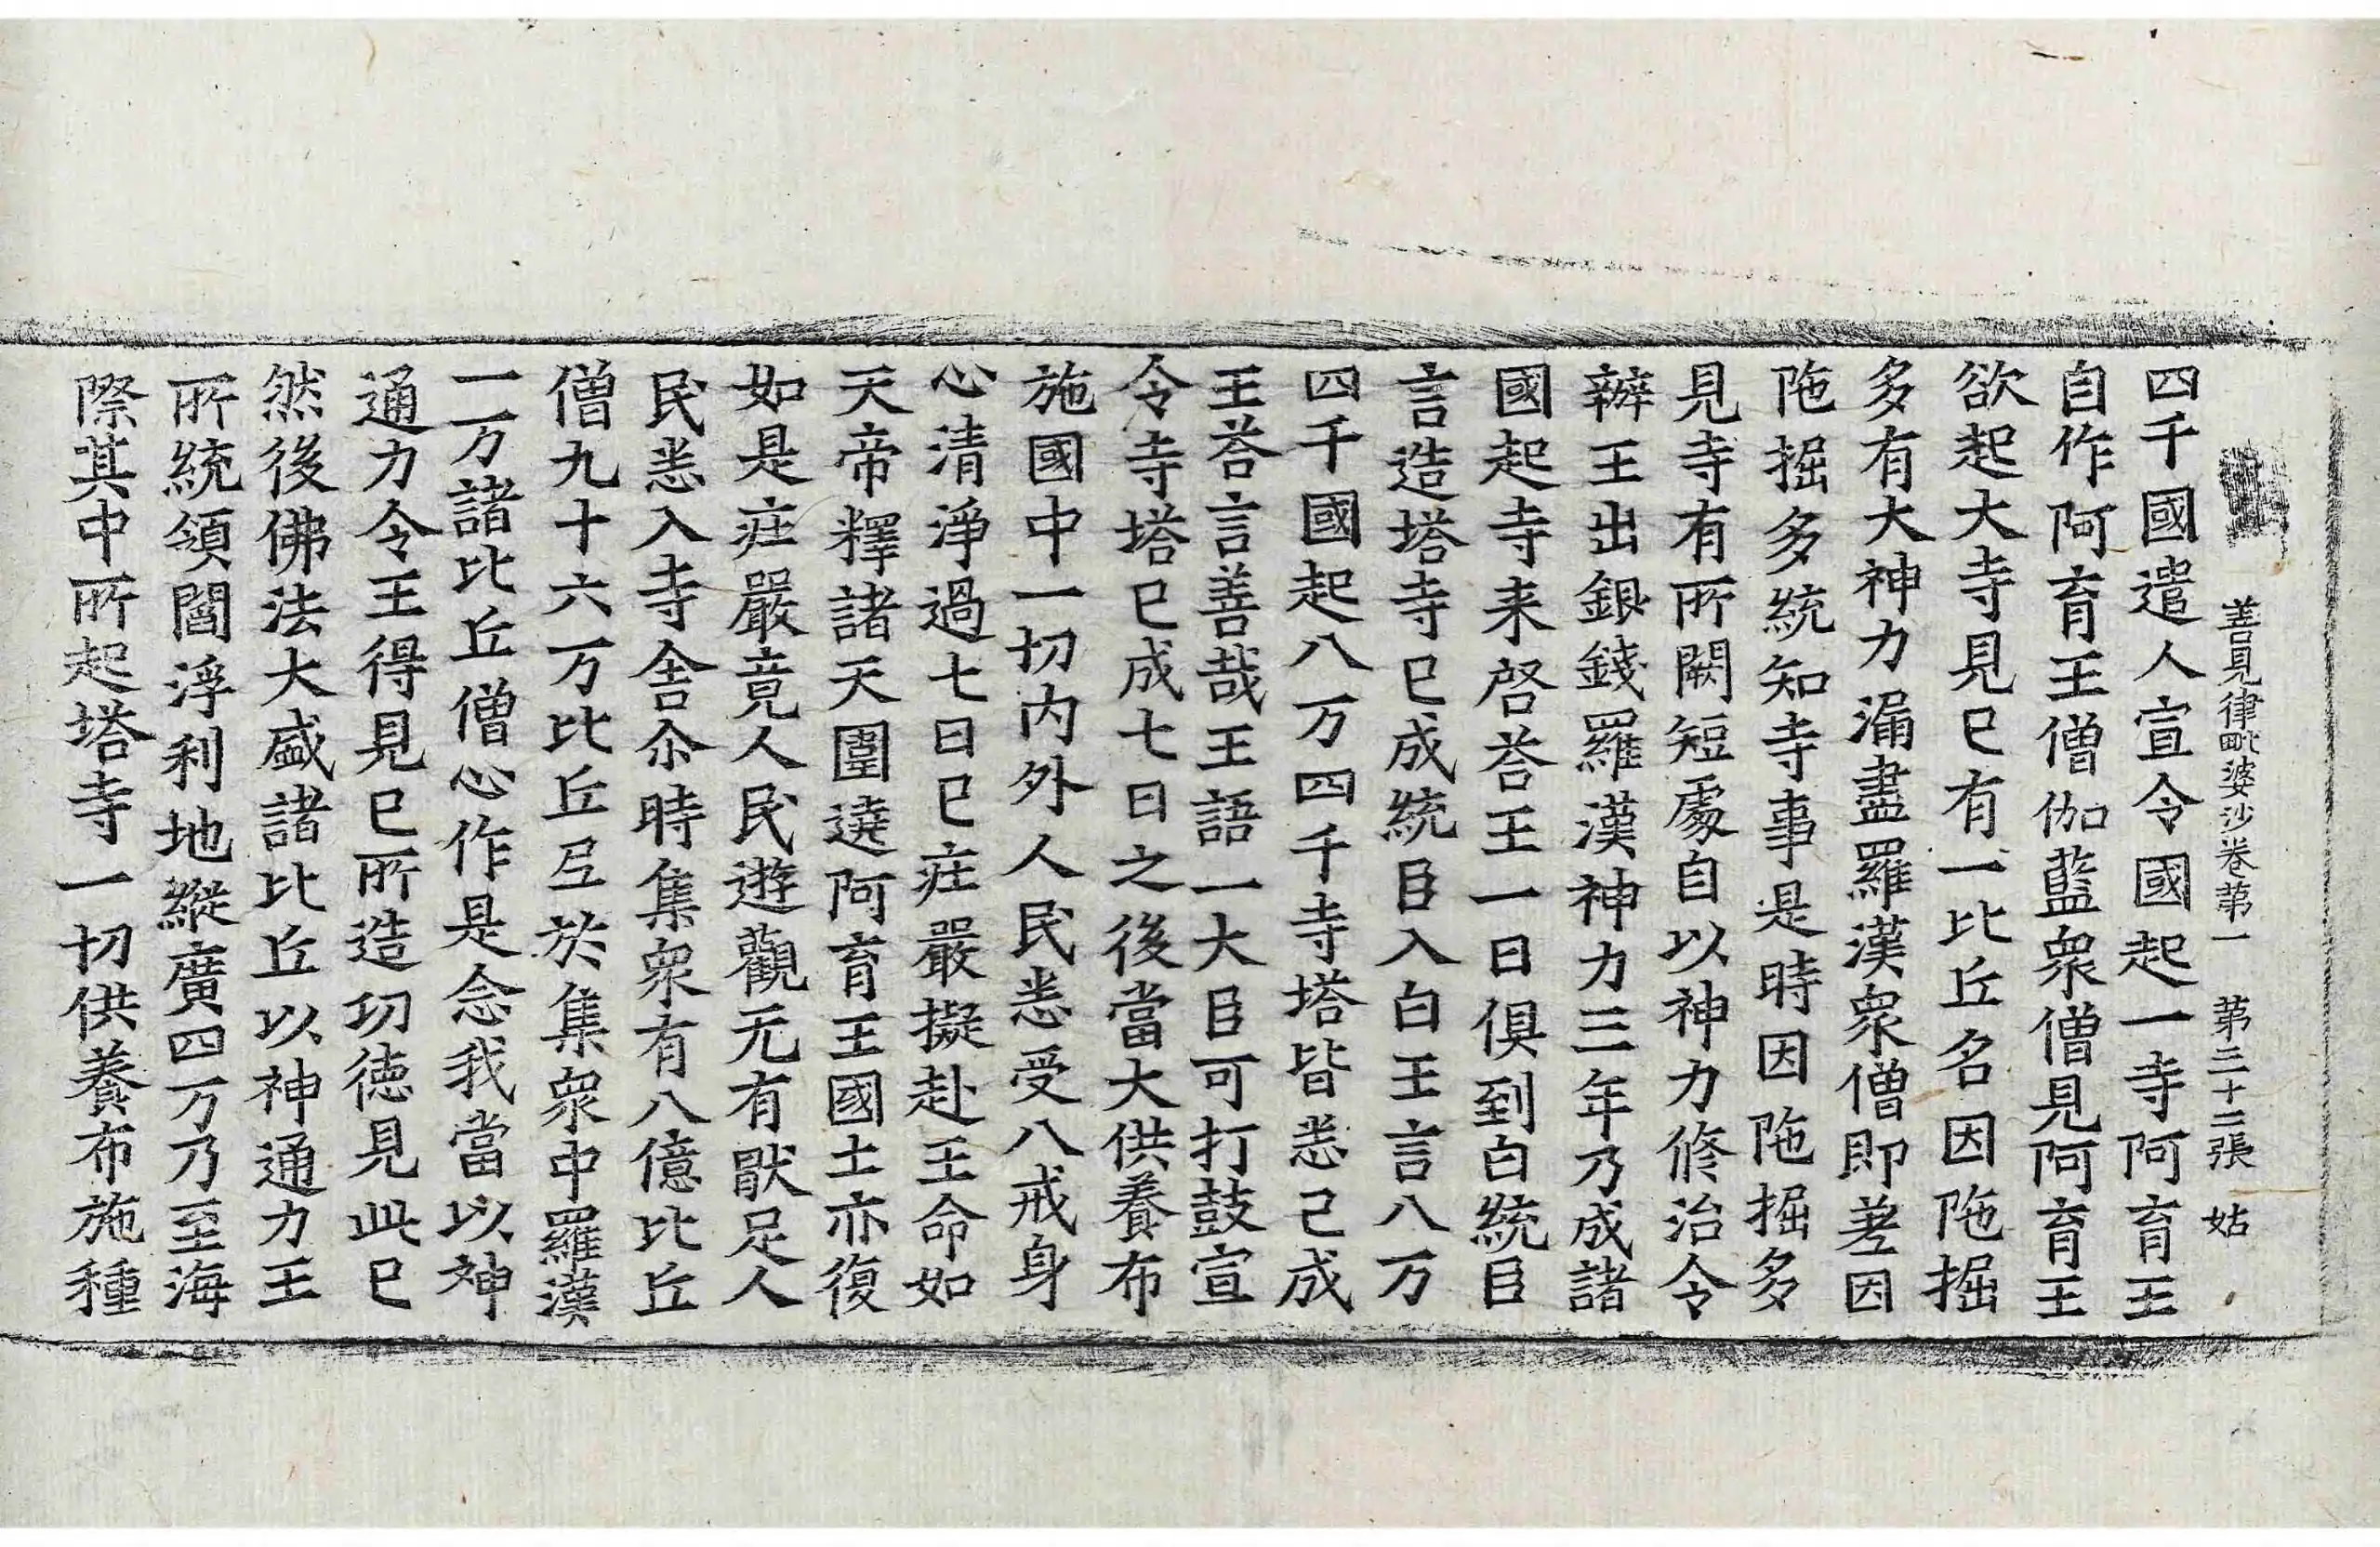 善見律毗婆沙卷第一 第三十二張 姑
四千國遣人宣令國起一寺阿育王
自作阿育王僧伽藍衆僧見阿育王
欲起大寺見已有一比丘名因陁掘
多有大神力漏盡羅漢衆僧即差因
陁掘多統知寺事是時因陁掘多
見寺有所闕短處自以神力修治令
辦王出銀錢羅漢神力三年乃成諸
國起寺来啓荅王一日俱到白統臣
言造塔寺已成統臣入白王言八万
四千國起八万四千寺塔皆悉已成
王荅言善哉王語一大臣可打鼓宣
令寺塔已成七日之後當大供養布
施國中一切内外人民悉受八戒身
心清淨過七日已庄嚴擬赴王命如
天帝釋諸天圍遶阿育王國土亦復
如是庄嚴竟人民遊觀无有猒足人
民悉入寺舍尒時集衆有八億比丘
僧九十六万比丘尼於集衆中羅漢
一万諸比丘僧心作是念我當以神
通力令王得見已所造功徳見此已
然後佛法大盛諸比丘以神通力王
所統領閻浮利地縱廣四万乃至海
際其中所起塔寺一切供養布施種